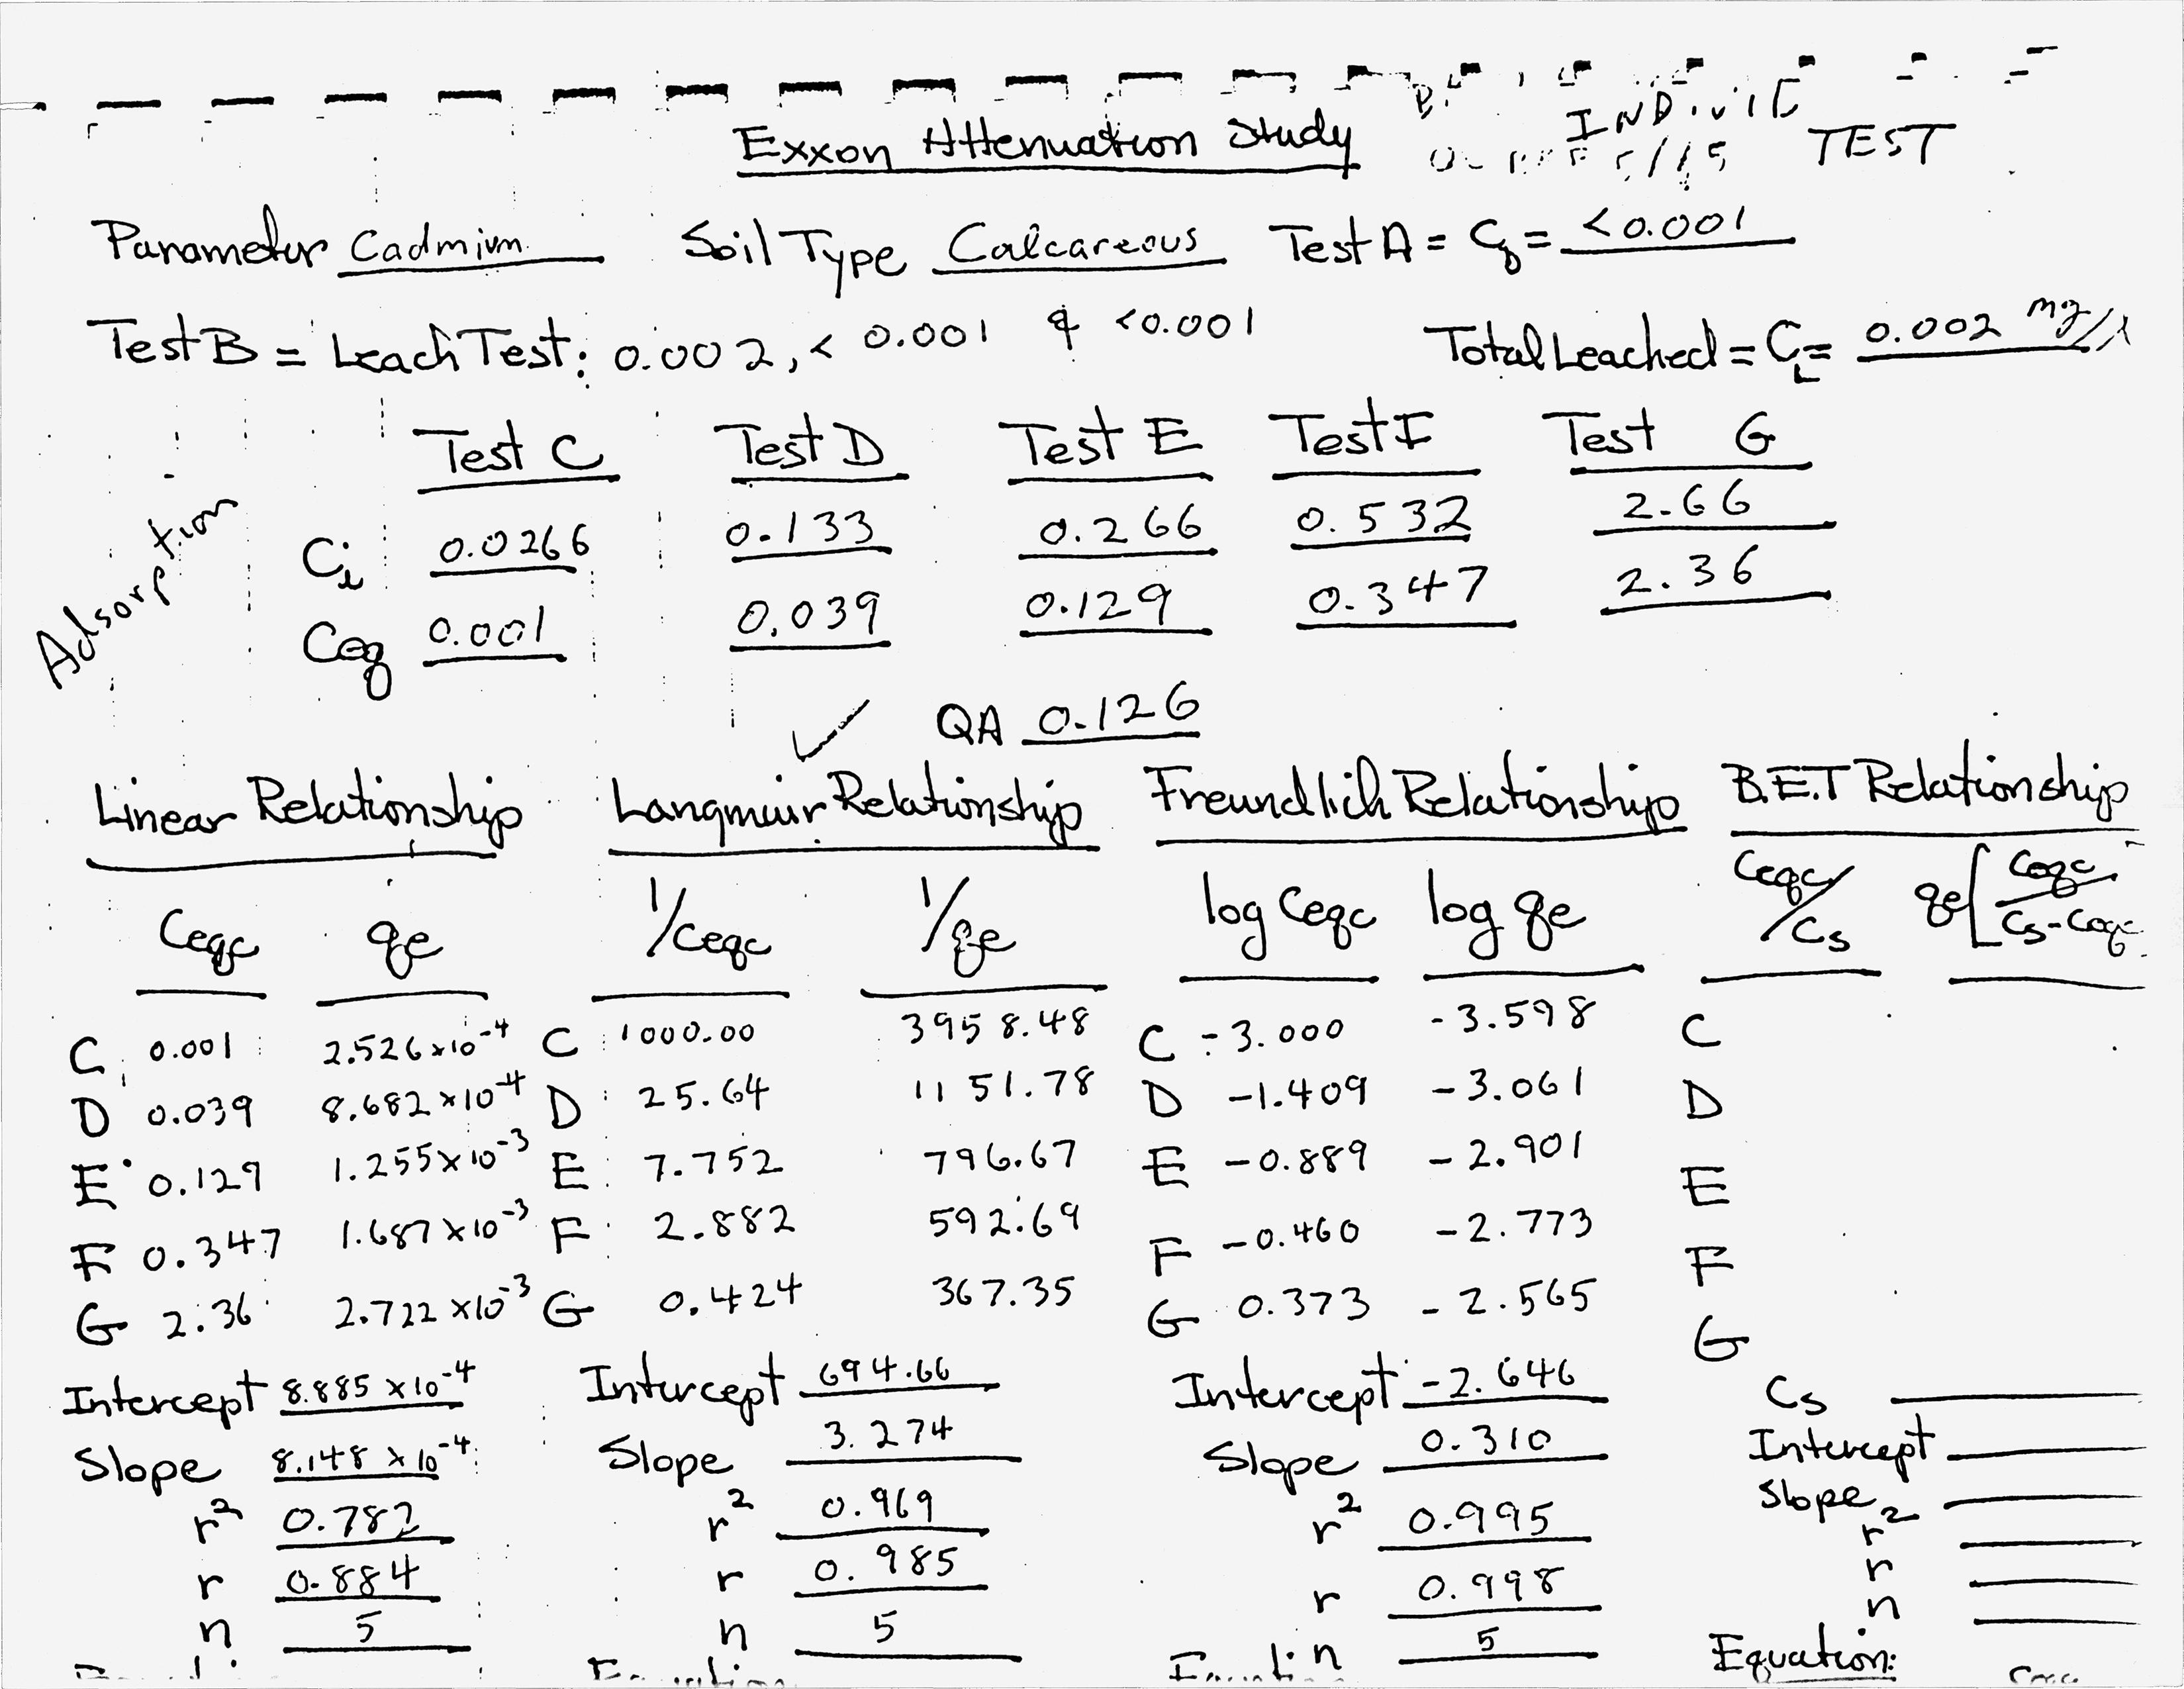 INDIVID
Exxon Attenuation Study TEST
Parameter Cadmium Soil Type Calcareous Test A = Cb = <0.001
Test B = Leach Test: 0.002, < 0.001 & <0.001 Total Leached = CL = 0.002 mg/l
Test C Test D Test E Test F Test G
Adsorption
Ci 0.0266 0.133 0.266 0.532 2.66
Ceq 0.001 0.039 0.129 0.347 2.36
✓ QA 0.126
Linear Relationship Langmuir Relationship Freundlich Relationship B.E.T Relationship
Ceqc qe 1/Ceqc 1/qe log Ceqc log qe Ceqc/Cs qe[Ceqc/Cs-Ceqc
C 0.001 2.526 x 10^-4 C 1000.00 3958.48 C -3.000 -3.598 C
D 0.039 8.682 x 10^-4 D 25.64 1151.78 D -1.409 -3.061 D
E 0.129 1.255 x 10^-3 E 7.752 796.67 E -0.889 -2.901 E
F 0.347 1.687 x 10^-3 F 2.882 592.69 F -0.460 -2.773 F
G 2.36 2.722 x 10^-3 G 0.424 367.35 G 0.373 -2.565 G
Intercept 8.885 x 10^-4 Intercept 694.66 Intercept -2.646 Cs
Slope 8.148 x 10^-4 Slope 3.274 Slope 0.310 Intercept
r² 0.782 r² 0.969 r² 0.995 Slope
r 0.884 r 0.985 r 0.998 r²
n 5 n 5 n 5 r
n
Equation: